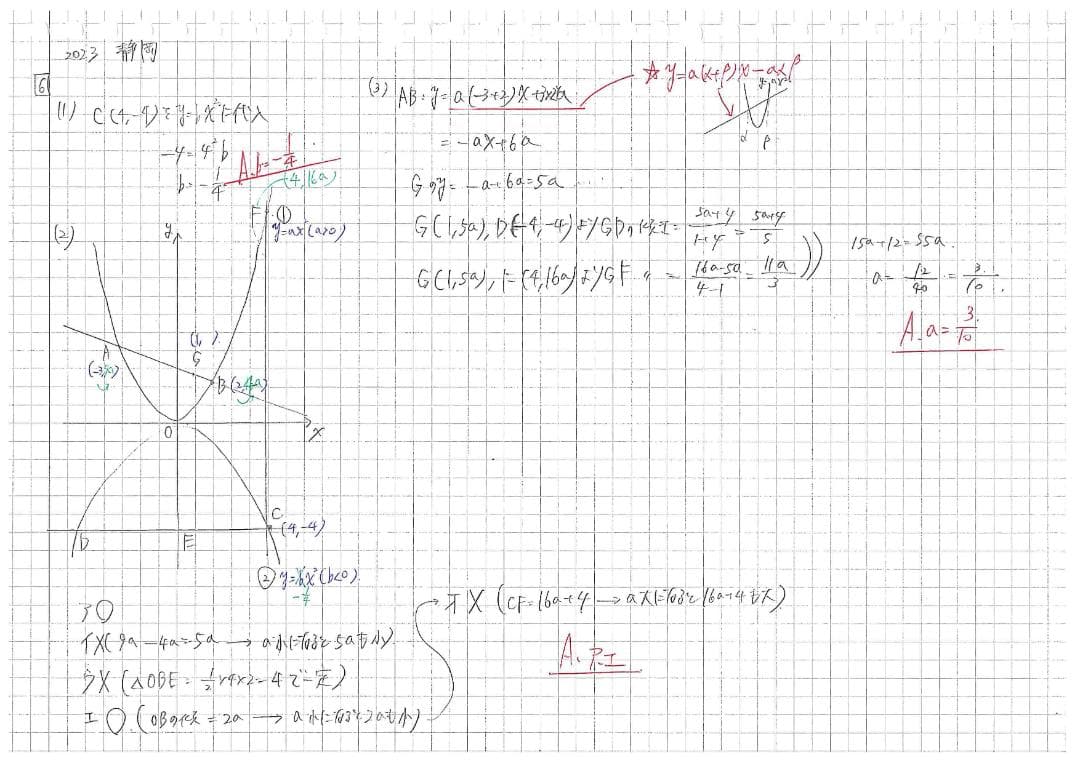 2023 静岡
6
(1) C(4,-4)をy=bx²に代入
-4=4²b
b=-1/4
A. b=-1/4
(2)
y
(4,16a)
F
①
y=ax²(a>0)
A
(-3,9a)
(1, )
G
B(2,4a)
O
x
C
(4,-4)
D
E
② y=bx²(b<0)
-1/4
ア○
イ×(9a-4a=5a → aが小になると5aも小)
ウ×(△OBE=1/2×4×2=4で一定)
エ○(OBの傾き=2a → aが小になると2aも小)
オ×(CF=16a+4 → aが大になると16a+4も大)
A. ア.エ
(3) AB:y=a(-3+2)x+3×2a
☆y=a(α+β)x-aαβ
y=ax²
α β
=-ax+6a
Gのy=-a+6a=5a
G(1,5a), D(-4,-4)よりGDの傾き=5a+4/1+4=5a+4/5
G(1,5a), F(4,16a)よりGF 〃 =16a-5a/4-1=11a/3
15a+12=55a.
a=12/40=3/10.
A. a=3/10